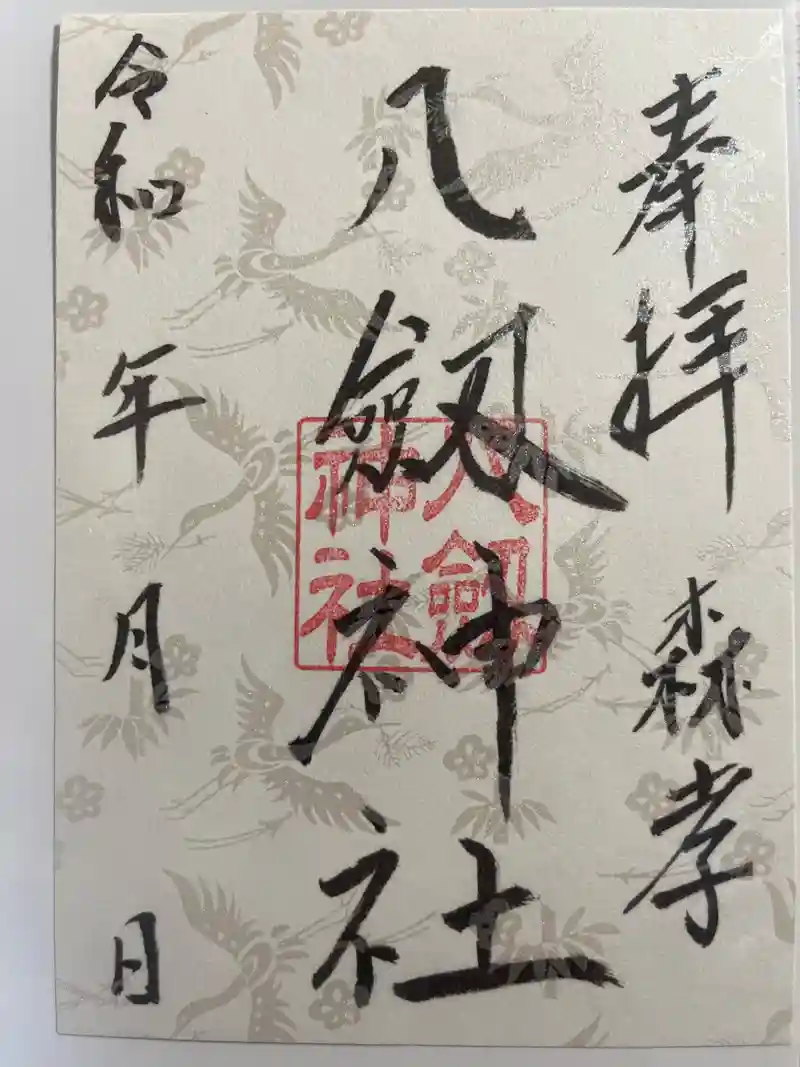 奉拝
森孝
八劔神社
八劔
神社
令和 年 月 日